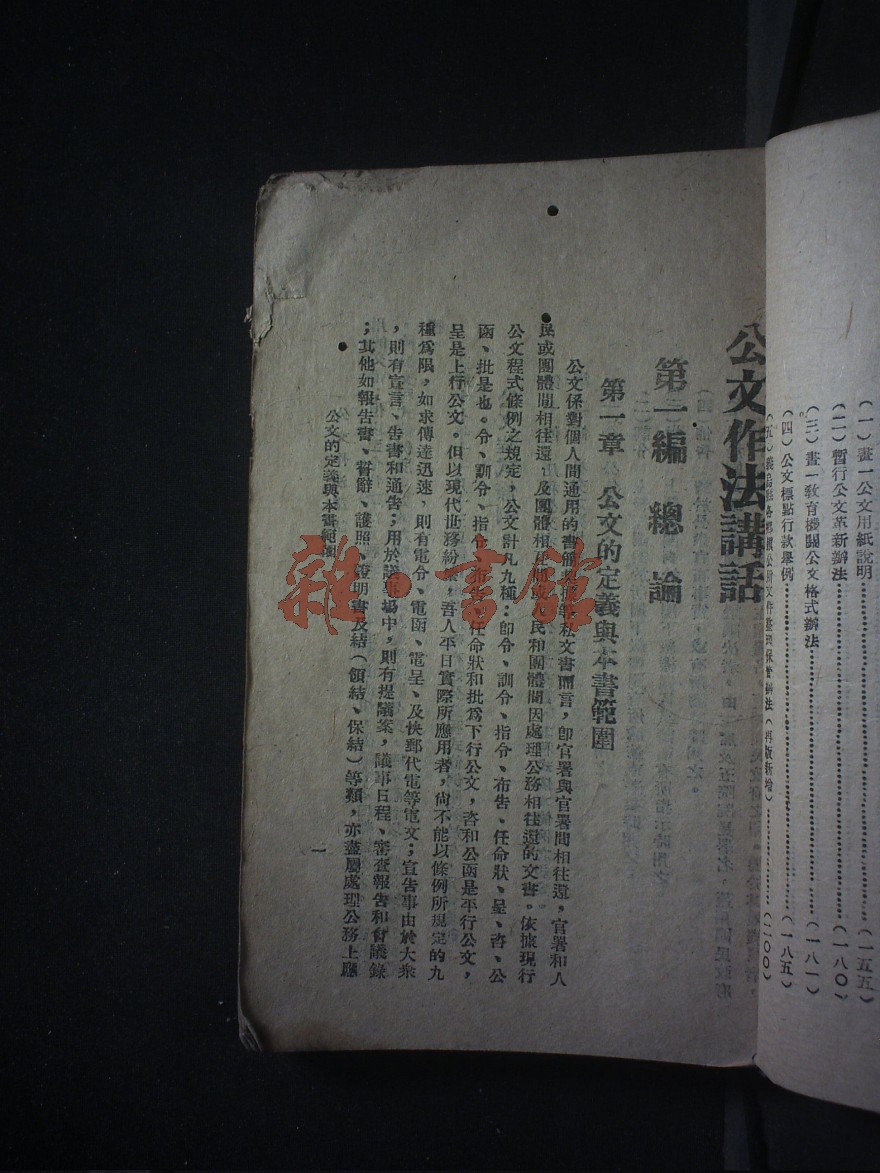 (一)畫一公文用紙說明………(一五五)
(二)暫行公文革新辦法………(一八〇)
(三)畫一教育機關公文格式辦法………(一八一)
(四)公文標點行款舉例………(一八五)
(五)義烏縣各鄉鎮公所文件整理保管辦法(再版新增)………(二〇〇)
公文作法講話
第一編 總論
第一章 公文的定義與本書範圍
公文係對個人間通用的書牘契據等私文書而言,卽官署與官署間相往還,官署和人
民或團體間相往還,及團體相互間或人民和團體間因處理公務相往還的文書。依據現行
公文程式條例之規定,公文計凡九種:卽令、訓令、指令、布告、任命狀、呈、咨、公
函、批是也。令、訓令、指令、布告、任命狀和批爲下行公文,咨和公函是平行公文,
呈是上行公文。但以現代世務紛繁,吾人平日實際所應用者,尙不能以條例所規定的九
種爲限,如求傳達迅速,則有電令、電函、電呈、及快郵代電等電文;宣告事由於大衆
,則有宣言、告書和通告;用於議事場中,則有提議案,議事日程、審查報告和會議錄
;其他如報告書、誓辭、護照、證明書及結(領結、保結)等類,亦盡屬處理公務上應
公文的定義與本書範圍
一
雜·書館